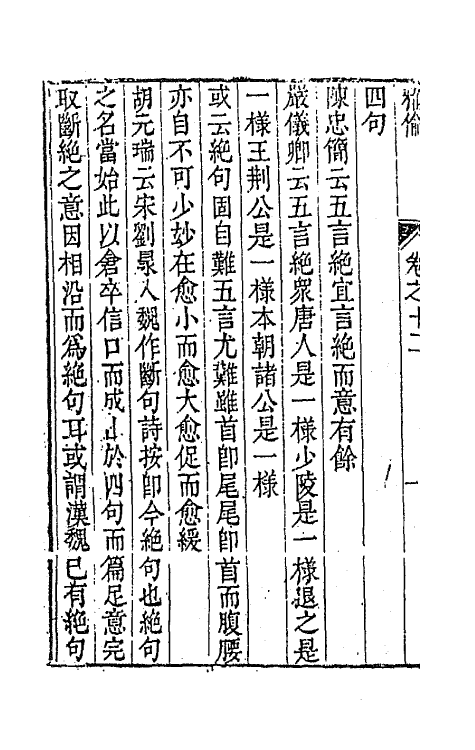 雅倫
卷之十二
四句
陳忠簡云五言絶宜言絶而意有餘
嚴儀卿云五言絶衆唐人是一樣少陵是一樣退之是
一樣王荆公是一樣本朝諸公是一樣
或云絶句固自難五言尤難離首卽尾尾卽首而腹腰
亦自不可少妙在愈小而愈大愈促而愈緩
胡元瑞云宋劉㫤入魏作斷句詩按卽今絶句也絶句
之名當始此以倉卒信口而成止於四句而篇足意完
取斷絶之意因相沿而爲絶句耳或謂漢魏已有絶句